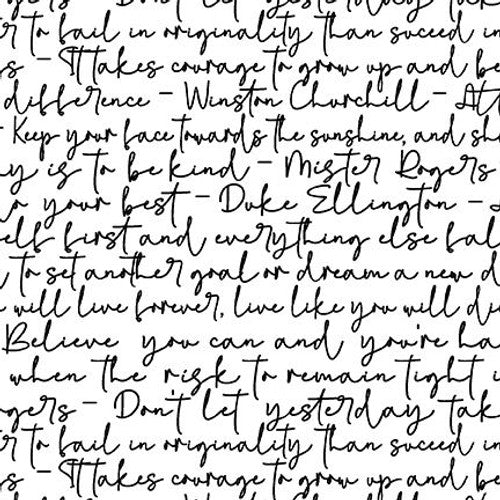 gers - Don't let yesterday tak
r to fail in originality than suceed in
s - It takes courage to grow up and be
difference - Winston Churchill - Att
Keep your face towards the sunshine, and sh
y is to be kind - Mister Rogers
o your best - Duke Ellington -
elf first and everything else fal
to set another goal or dream a new d
will live forever, live like you will di
Believe you can and you're ha
when the risk to remain tight i
gers - Don't let yesterday tak
r to fail in originality than suceed in
s - It takes courage to grow up and be
difference - Winston Churchill - Att